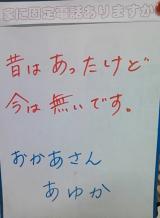 家に固定電話ありますか
昔はあったけど
今は無いです。
おかあさん
あゆか